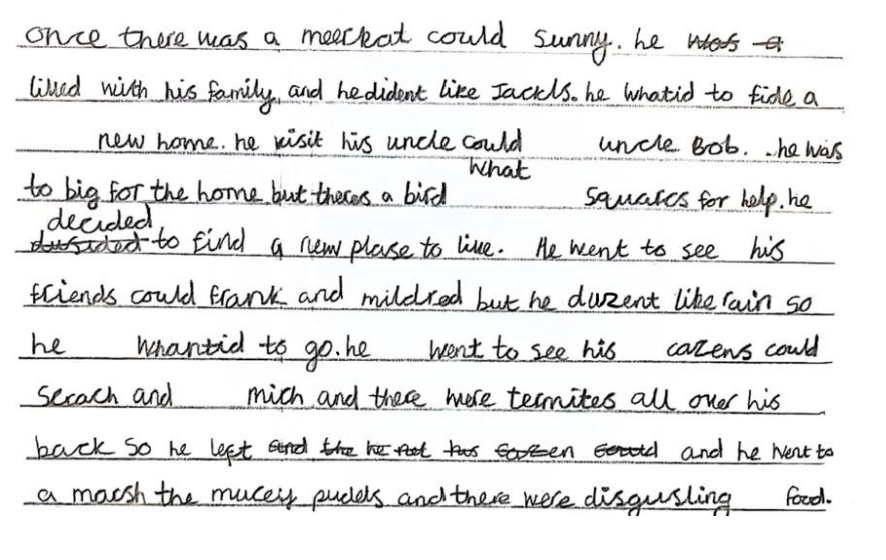 once there was a meerkat could sunny. he was a
lived with his family, and he dident like Jackls. he whatid to fide a
new home. he visit his uncle could uncle Bob. he was
what
to big for the home but theres a bird squarcs for help. he
decided
to find a new plase to live. He went to see his
friends could frank and mildred but he duzent like rain so
he whantid to go. he went to see his cazens could
scrach and mich and there were termites all over his
back so he left and the he not his cozen could and he went to
a marsh the mucey pudels and there were disgusting food.